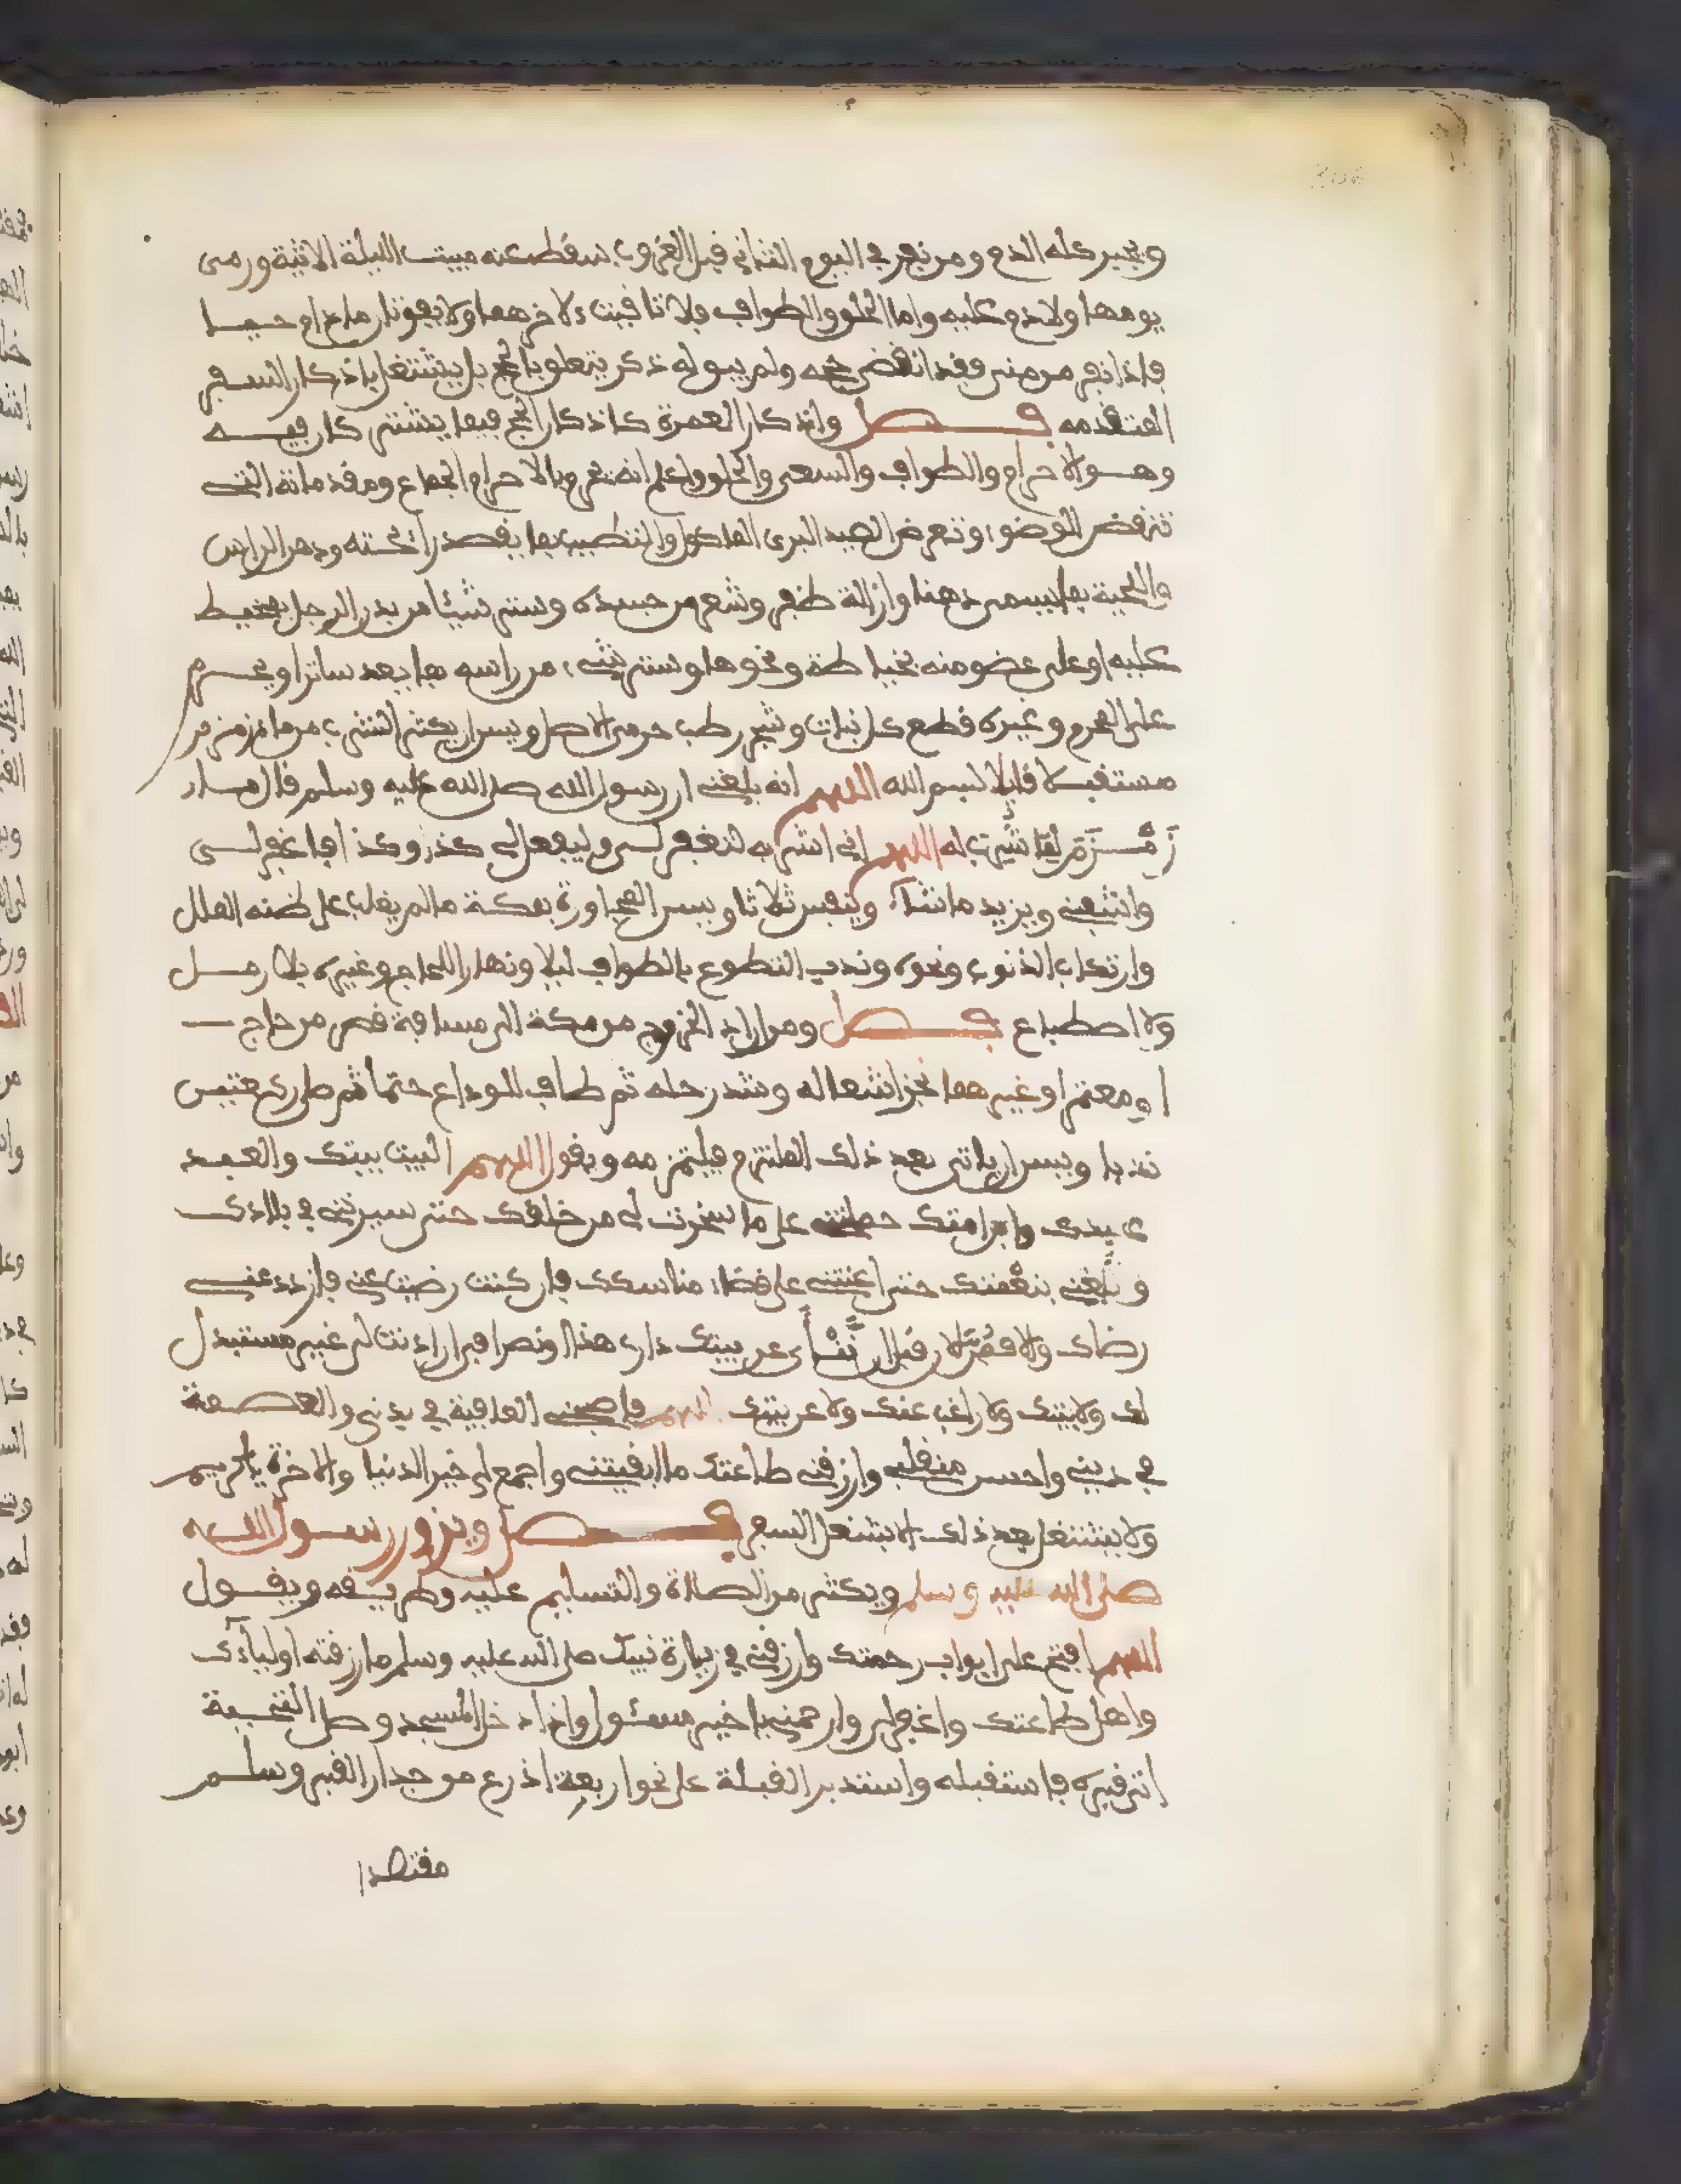 ويجبر كله الدم ومن نفر في اليوم الثاني قبل الغروب سقط عنه مبيت الليلة الاتية ورمى
يومها ولا دم عليه واما الحلق والطواف فلا تاقيت لاخرهما ولا يفوتان ما دام حيا
فاذا نفر من منى فقد انقضى حجه ولم يبق له ذكر يتعلق بالحج بل يشتغل باذكار السفر
المتقدمه فصل واذكار العمرة كاذكار الحج فيما يشتركان فيه
وهو الاحرام والطواف والسعي والحلق واعلم انه يحرم بالاحرام الجماع ومقدماته التي
تنقض الوضوء وتعرض الصيد البري الماكول والتطييب بما يقصد رائحته ودهن الراس
واللحية بما يسمى دهنا وازالة ظفر وشعر من جسده وستر شيئا من بدن الرجل بمخيط
عليه او على عضو منه بخياطة ونحوها وستر شيء من راسه بما يعد ساترا ويحرم
على المحرم وغيره قطع كل نبات وشجر رطب حرمي الاصل ويسن ان يكثر الشرب من ماء زمزم
مستقبلا قايلا بسم الله اللهم انه بلغني ان رسول الله صلى الله عليه وسلم قال ماء
زمزم لما شرب له اللهم اني اشربه لتغفر لي وليفعل لي كذا وكذا فاغفر لي
واشفني ويزيد ما شاء ويتنفس ثلاثا ويسن المجاورة بمكة ما لم يغلب على ظنه الملل
وارتكاب الذنوب ونحوه وندب التطوع بالطواف ليلا ونهارا للحاج وغيره بلا رمل
ولا اضطباع فصل ومن اراد الخروج من مكة الى مسافة قصر من حاج
او معتمر او غيرهما نجز اشغاله وشد رحله ثم طاف للوداع حتما ثم صلى ركعتين
ندبا ويسن ان ياتي بعد ذلك الملتزم فيلتزمه ويقول اللهم البيت بيتك والعبد
عبدك وابن امتك حملتني على ما سخرت لي من خلقك حتى سيرتني في بلادك
وبلغتني بنعمتك حتى اعنتني على قضاء مناسكك فان كنت رضيت عني فازدد عني
رضاك والا فمن الان قبل ان تنأى عن بيتك داري هذا اوان انصرافي ان اذنت لي غير مستبدل
لك ولا ببيتك ولا راغب عنك ولا عن بيتك اللهم فاصحبني العافية في بدني والعصمة
في ديني واحسن منقلبي وارزقني طاعتك ما ابقيتني واجمع لي خير الدنيا والاخرة يا كريم
ولا يشتغل بعد ذلك الا بشغل السفر فصل ويزور رسول الله
صلى الله عليه وسلم ويكثر من الصلاة والتسليم عليه وطريقه ويقول
اللهم افتح على ابواب رحمتك وارزقني في زيارة نبيك صلى الله عليه وسلم ما رزقته اولياءك
واهل طاعتك واغفر لي وارحمني يا خير مسئول واذا دخل المسجد وصل التحية
اتى قبره فاستقبله واستدبر القبلة على نحو اربعة اذرع من جدار القبر وسلم
مقتصدا